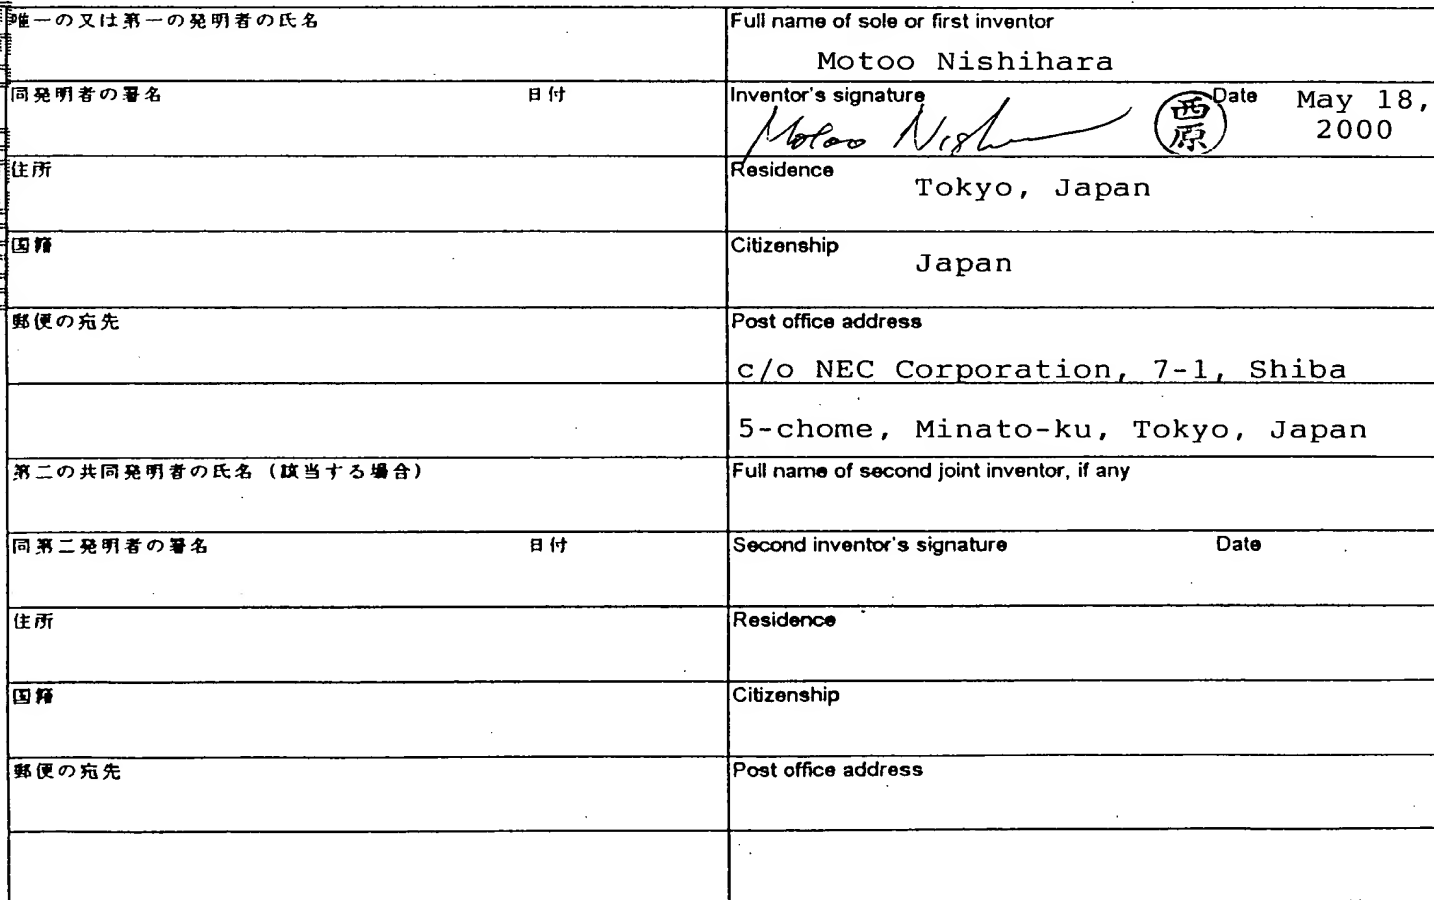 唯一の又は第一の発明者の氏名
Full name of sole or first inventor
Motoo Nishihara
同発明者の署名 日付
Inventor's signature Date May 18,
2000
Motoo
西原
住所
Residence
Tokyo, Japan
国籍
Citizenship
Japan
郵便の宛先
Post office address
c/o NEC Corporation, 7-1, Shiba
5-chome, Minato-ku, Tokyo, Japan
第二の共同発明者の氏名（該当する場合）
Full name of second joint inventor, if any
同第二発明者の署名 日付
Second inventor's signature Date
住所
Residence
国籍
Citizenship
郵便の宛先
Post office address